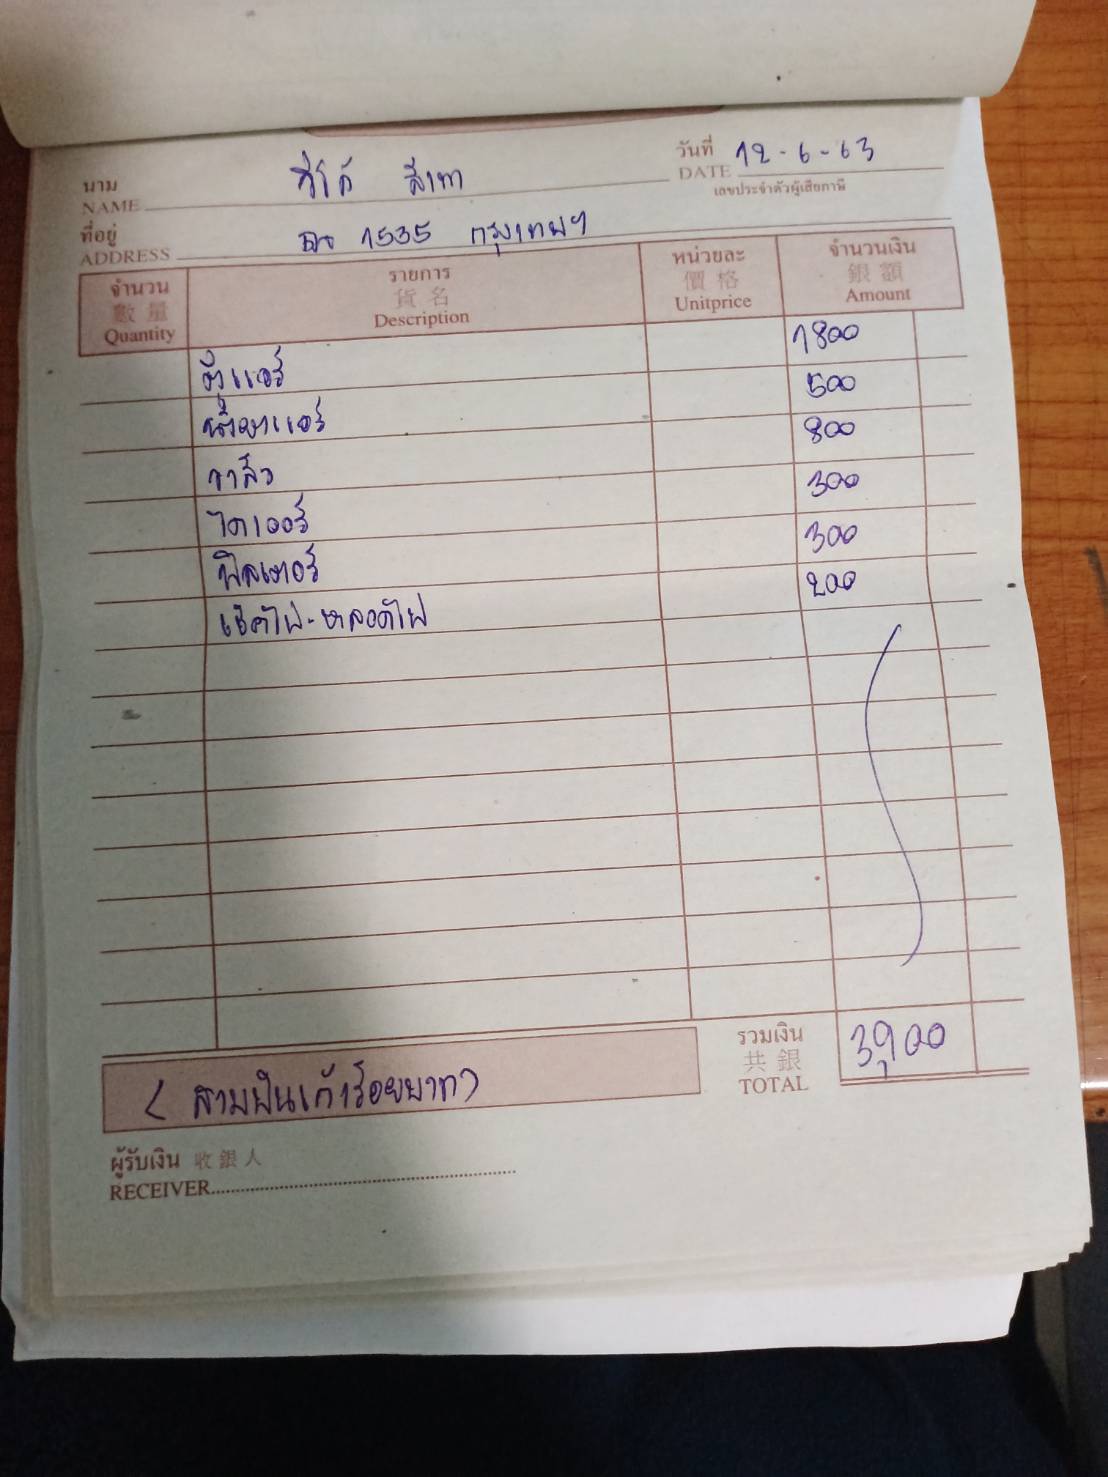 นาม
NAME วีโก้ สีเทา
วันที่
DATE 12-6-63
เลขประจำตัวผู้เสียภาษี
ที่อยู่
ADDRESS 1535 กรุงเทพฯ
จำนวน 數量 Quantity
รายการ 貨名 Description
หน่วยละ 價格 Unitprice
จำนวนเงิน 銀額 Amount
ตู้แอร์ 1800
น้ำยาแอร์ 500
วาล์ว 800
ไดเออร์ 300
ฟิลเตอร์ 300
เช็คไฟ-หลอดไฟ 200
รวมเงิน
共銀
TOTAL 3,900
(สามพันเก้าร้อยบาท)
ผู้รับเงิน 收銀人
RECEIVER